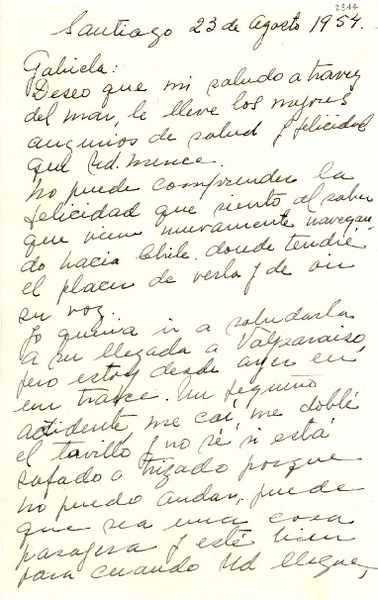 2344
Santiago 23 de Agosto 1954.
Gabriela:
Deseo que mi saludo a travez
del mar, le lleve los mejores
augurios de salud y felicidad
que Ud. merece.
No puede comprender la
felicidad que siento al saber
que viene nuevamente navegan-
do hacia Chile. donde tendré
el placer de verla y de oir
su voz.
Yo queria ir a saludarla
a su llegada a Valparaiso,
pero estoy desde ayer en
un trance. Un pequeño
accidente me caí, me doblé
el tovillo y no sé si está
safado o trizado porque
no puedo andar, puede
que sea una cosa
pasajera y esté bien
para cuando Ud llegue,